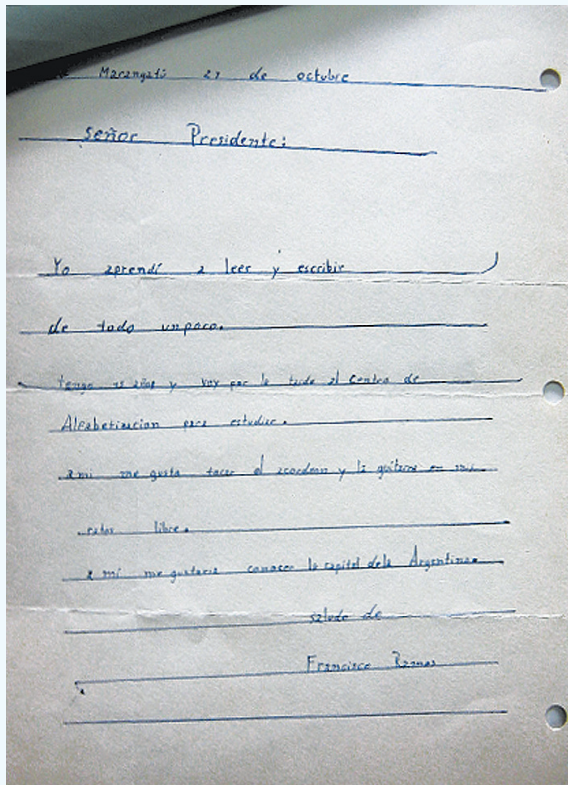 Marangatú 27 de octubre
Señor Presidente:
Yo aprendí a leer y escribir
de todo un poco.
tengo 15 años y voy por la tarde al Centro de
Alfabetizacion para estudiar.
a mi me gusta tocar el acordeon y la guitarra en mis
ratos libre.
a mí me gustaria conocer la capital dela Argentina.
saludo de
Francisco Ramos